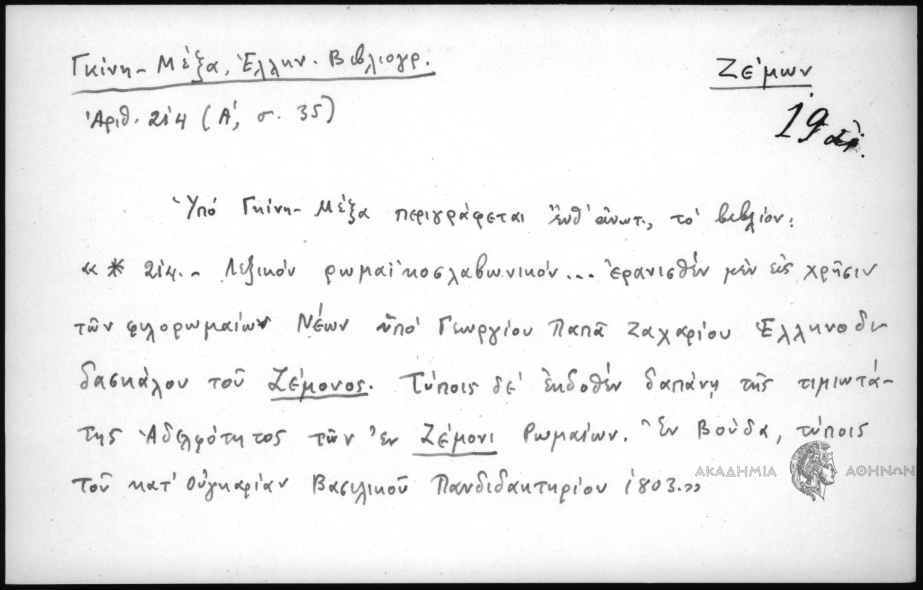 Γκίνη - Μέξα, Ἑλλην. Βιβλιογρ.
Ζέμων
Ἀριθ. 214 (Α΄, σ. 35)
19
Ὑπό Γκίνη - Μέξα περιγράφεται ἔνθ' ἀνωτ., τό βιβλίον:
« * 214. - Λεξικόν ρωμαϊκοσλαβωνικόν... ἐρανισθέν μέν εἰς χρῆσιν
τῶν φιλορωμαίων Νέων ὑπό Γεωργίου Παπᾶ Ζαχαρίου Ἑλληνοδι
δασκάλου τοῦ Ζέμονος. Τύποις δέ ἐκδοθέν δαπάνῃ τῆς τιμιωτά-
της Ἀδελφότητος τῶν ἐν Ζέμονι Ρωμαίων. Ἐν Βούδα, τύποις
τοῦ κατ' Οὐγκαρίαν Βασιλικοῦ Πανδιδακτηρίου 1803.»
ΑΚΑΔΗΜΙΑ ΑΘΗΝΩΝ